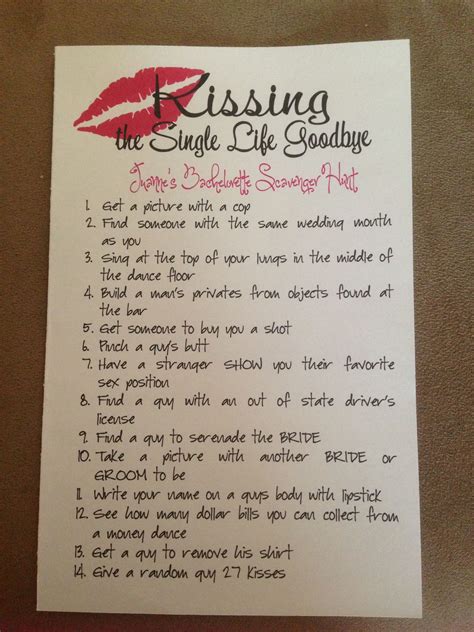 Kissing
the Single Life Goodbye
Juanne's Bachelorette Scavenger Hunt
1. Get a picture with a cop
2. Find someone with the same wedding month
as you
3. Sing at the top of your lungs in the middle of
the dance floor
4. Build a man's privates from objects found at
the bar
5. Get someone to buy you a shot
6. Pinch a guy's butt
7. Have a stranger SHOW you their favorite
sex position
8. Find a guy with an out of state driver's
license
9. Find a guy to serenade the BRIDE
10. Take a picture with another BRIDE or
GROOM to be
11. Write your name on a guys body with lipstick
12. See how many dollar bills you can collect from
a money dance
13. Get a guy to remove his shirt
14. Give a random guy 27 kisses